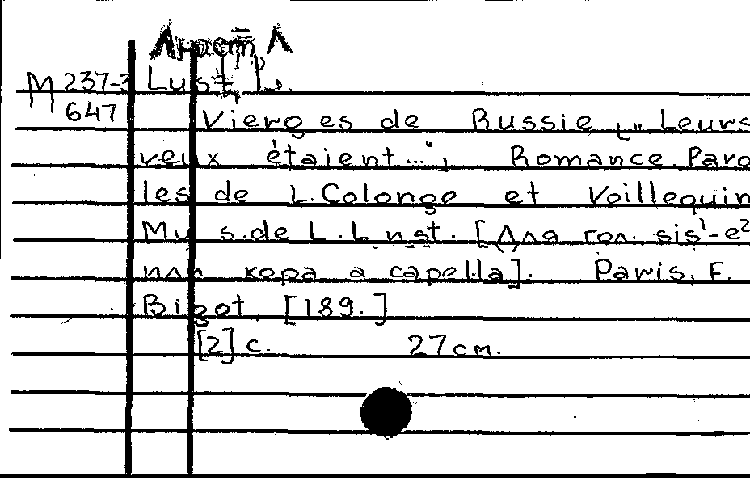 Люст, Л
М 237-3 Lust, L.
647 Vierges de Russie („Leurs
yeux étaient..."; Romance. Paro
les de L. Colonge et Voillequin
Mus. de L. Lust. [Для гол. sis¹-e²
или хора a capella]. Paris, F.
Bigot, [189.]
[2] с. 27 см.